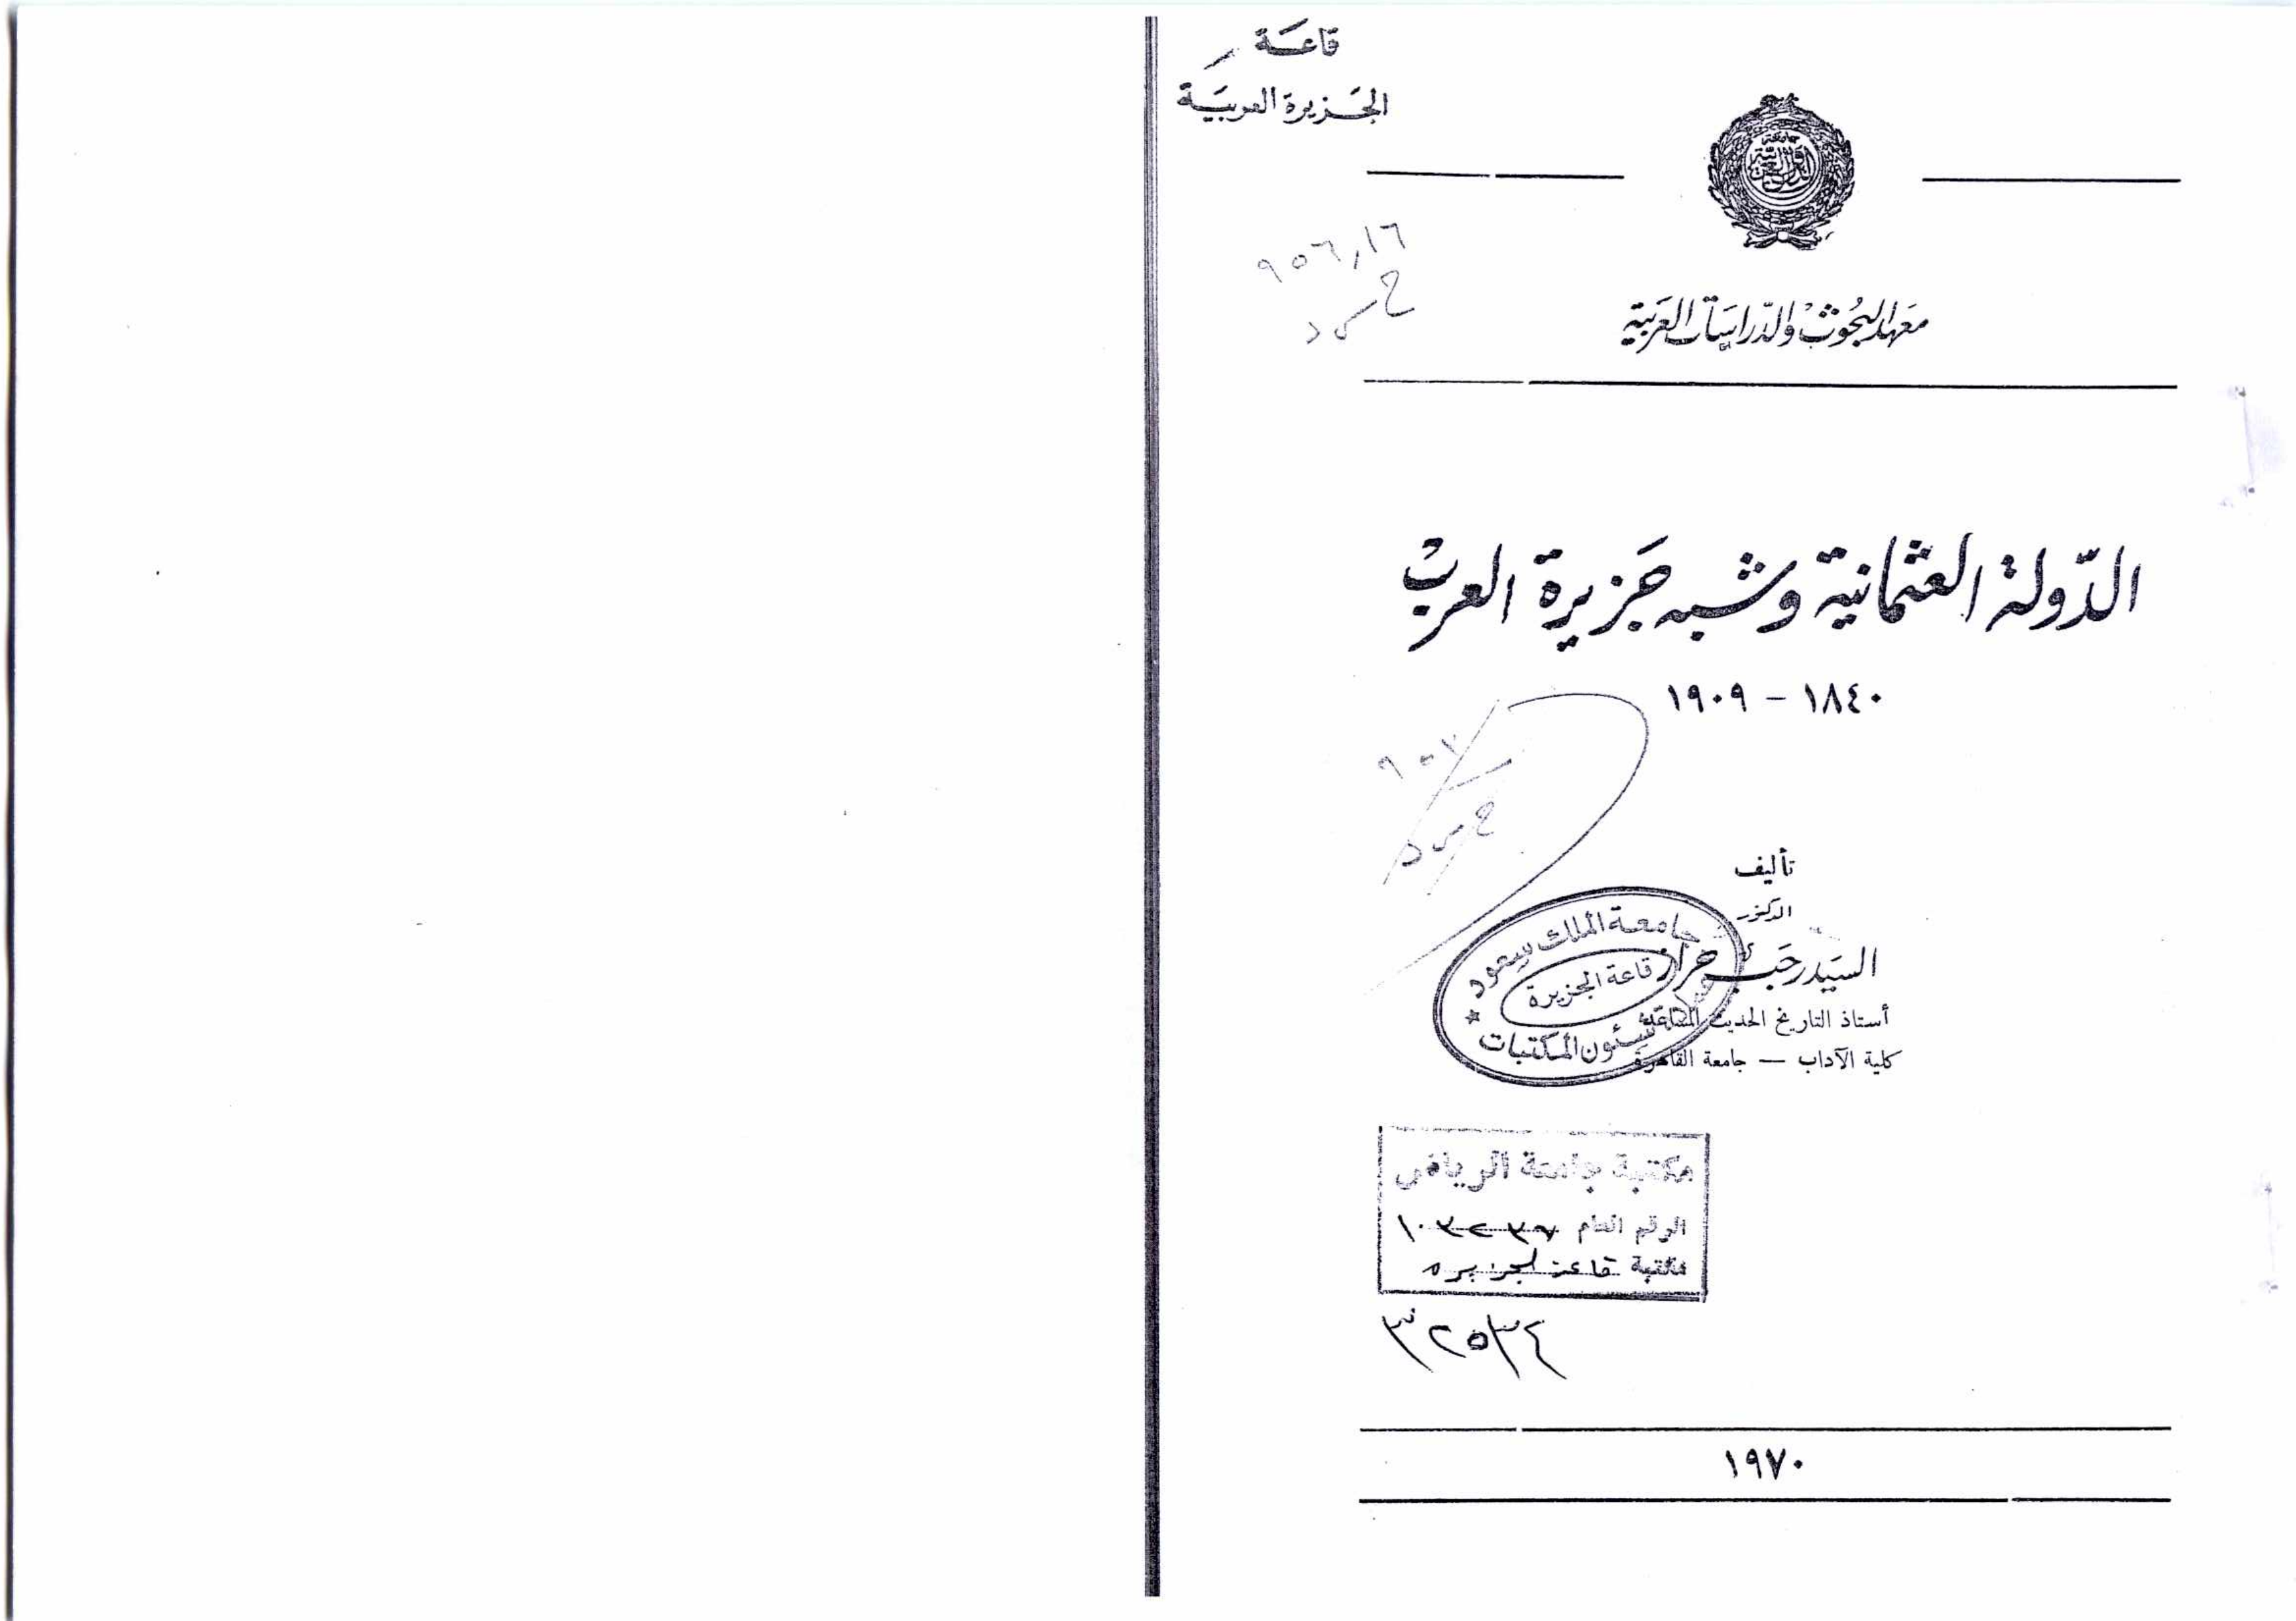 قاعة
الجزيرة العربية
جامعة
الدول العربية
٩٥٦,١٦
ح س د
معهد البحوث والدراسات العربية
الدولة العثمانية وشبه جزيرة العرب
١٨٤٠ - ١٩٠٩
ح س د
تأليف
الدكتور
السيد رجب حراز
أستاذ التاريخ الحديث المساعد
كلية الآداب — جامعة القاهرة
جامعة الملك سعود
قاعة الجزيرة
شئون المكتبات
مكتبة جامعة الرياض
الرقم العام
مكتبة قاعة الجزيرة
٣٢٥٣٤
١٩٧٠